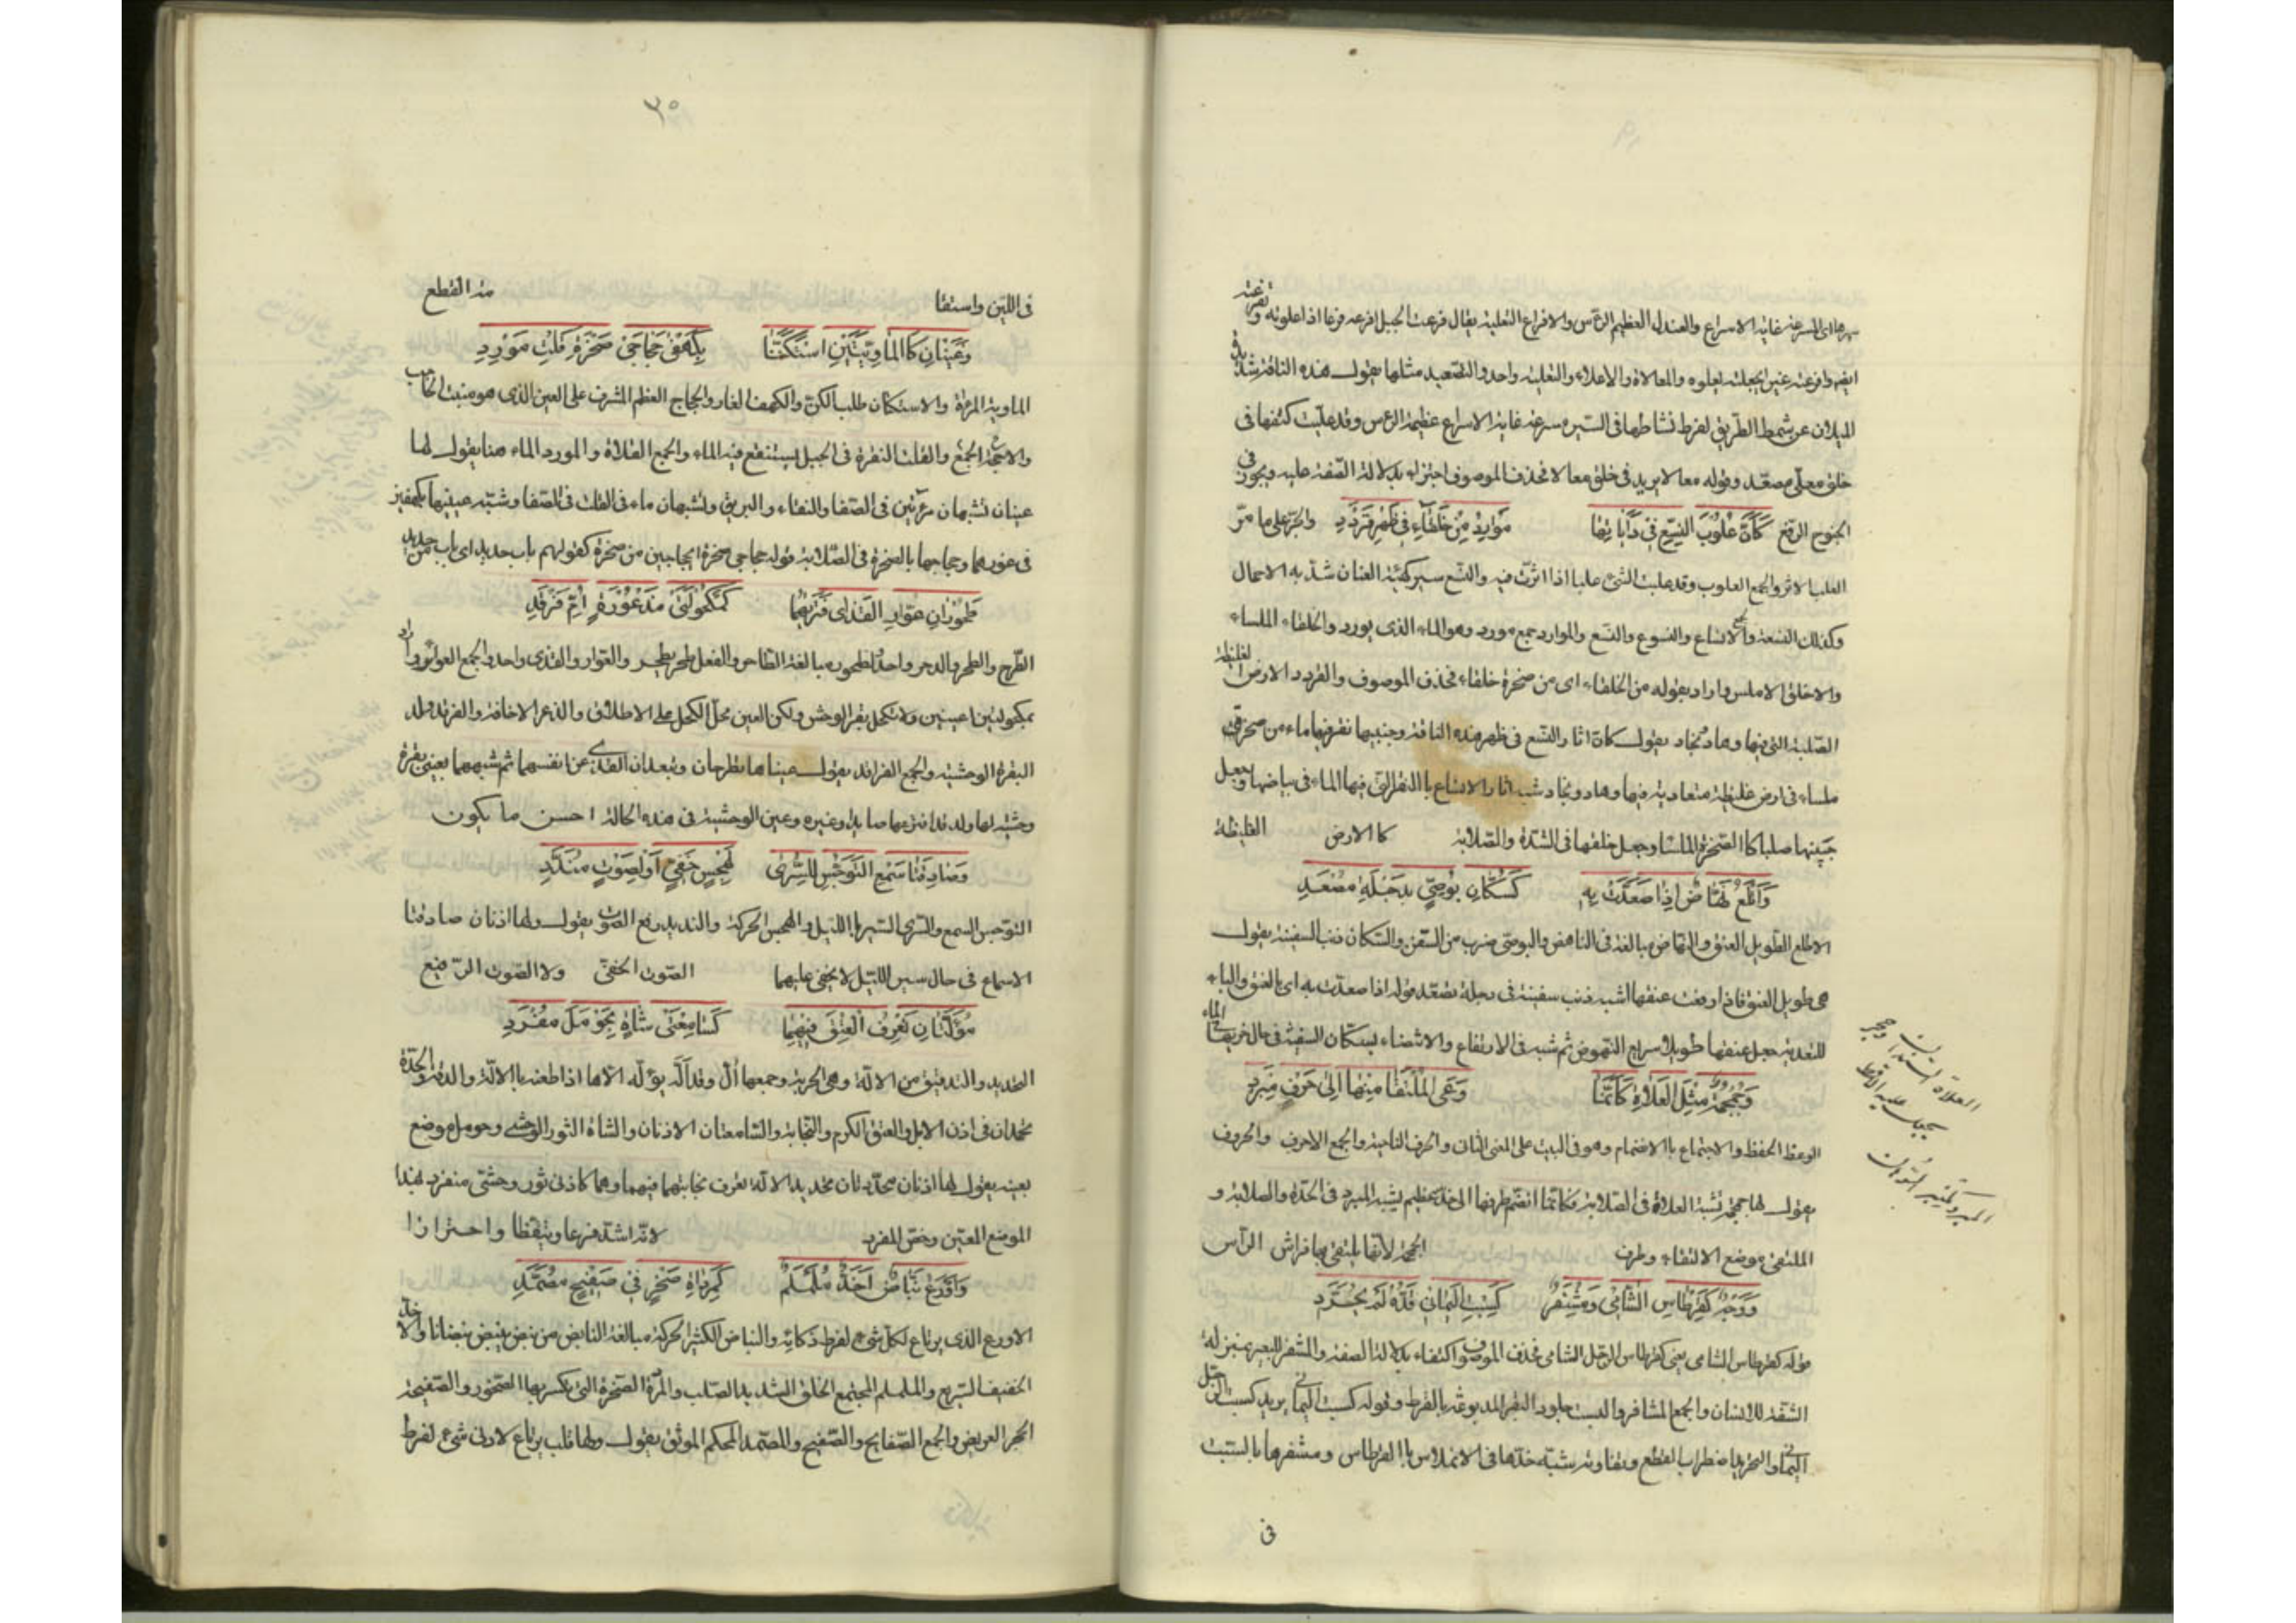 سيرها اى المسرعة غاية الاسراع والعندل العظيم الرأس والافراع التعلية يقال فرعت الجبل افرعه فرعا اذا علوته وتفرعته
ايضا وافرعته غيرى جعلته يعلوه والمعالاة والاعلاء والتعلية واحد والتصعيد مثلها يقول هذه الناقة شديدة
الميلان عن سمط الطريق لفرط نشاطها فى السير مسرعة غاية الاسراع عظيمة الرأس وقد عليت كتفها فى
خلق معلى مصعد وقوله معالا يريد فى خلق معالا فحذف الموصوف اجتزاء بدلالة الصفة عليه ويجوز فى
الجنوح الرفع كَأَنَّ عُلُوبَ النِّسْعِ فِى دَأَيَاتِهَا مَوَارِدُ مِنْ خَلْقَاءَ فِى ظَهْرِ قَرْدَدِ والجر على ما مر
العلب الاثر والجمع العلوب وقد علبت الشئ علبا اذا اثرت فيه والنسع سير كهيئة العنان شد به الاحمال
وكذلك النسعة والجمع الانساع والنسوع والنسع والموارد جمع مورد وهو الماء الذى يورد والخلقاء الملساء
والاخلق الاملس واراد بقوله من الخلقاء اى من صخرة خلقاء فحذف الموصوف والقردد الارض الغليظة
الصلبة التى فيها وهاد ونجاد يقول كان اثار النسع فى ظهر هذه الناقة وجنبيها نقر فيها ماء من صخرة
ملساء فى ارض غليظة متعادية فيها وهاد ونجاد شبه اثار الانساع بالنقر التى فيها الماء فى بياضها وجعل
جنبيها صلبا كالصخرة الملسا وجعل خلقها فى الشدة والصلابة كالارض الغليظة
وَأَتْلَعُ نَهَّاضٌ اِذَا صَعَّدَتْ بِهِ كَسُكَّانِ بُوصِىٍّ بِدَجْلَةَ مُصْعِدِ
الاتلع الطويل العنق والنهاض مبالغة فى الناهض والبوصى ضرب من السفن والسكان ذنب السفينة يقول
هى طويل العنق فاذا رفعت عنقها اشبه ذنب سفينة فى دجلة تصعد قوله اذا صعدت به اى بالعنق والباء
للتعدية جعل عنقها طويلا سريع النهوض ثم شبه فى الارتفاع والانتصاء بسكان السفينة فى حال جريها فى الماء
وَجُمْجُمَةٌ مِثْلُ الْعَلَاةِ كَأَنَّمَا وَعَى الْمُلْتَقَا مِنْهَا اِلَى حَرْفِ مِبْرَدِ
الوعظ الحفظ والاجتماع بالانضمام وهو فى البيت على المعنى الثانى والحرف الناحية والجمع الاحرف والحروف
يقول لها جمجمة تشبه العلاة فى الصلابة فكانما انضم طرفها الى حد عظيم يشبه المبرد فى الحدة والصلابة و
الملتقى موضع الالتقاء وطرف الجمجمة لانها يلتقى بها فراش الرأس
وَوَجْهٌ كَقِرْطَاسِ الشَّامِى وَمِشْفَرٌ كَسِبْتِ الْيَمَانِى قَدُّهُ لَمْ يُجَرَّدِ
قوله كقرطاس الشامى يعنى كقرطاس الرجل الشامى فحذف الموصوف اكتفاء بدلالة الصفة والمشفر للبعير بمنزلة
الشفة للانسان والجمع المشافر والسبت جلود البقر المدبوغة بالقرظ وقوله كسبت اليمانى يريد كسبت الرجل
اليمانى والتحريد اضطراب القطع وتفاوته شبه خدها فى الانملاس بالقرطاس ومشفرها بالسبت
فى
العلاة السندان
يجعل عليه
المبرد تمبر السوهان
٣٥
فى اللين واستقا مة القطع
وَعَيْنَانِ كَالْمَاوِيَّتَيْنِ اسْتَكَنَّتَا بِكَهْفَىْ حَجَاجَىْ صَخْرَةٍ قَلْتِ مَوْرِدِ
الماوية المرءاة والاستكنان طلب الكن والكهف الغار والحجاج العظم المشرف على العين الذى هو منبت الحاجب
والاحجة الجمع والقلت النقرة فى الجبل يستنقع فيه الماء والجمع القلاة والمورد الماء هنا يقول لها
عينان تشبهان مرءاتين فى الصفا والنقاء والبريق وتشبهان ماء فى القلت فى الصفا وشبه عينيها بكهفين
فى غورهما وحجاجها بالصخرة فى الصلابة قوله حجاجى صخرة اى حجاجين من صخرة كقولهم باب حديد اى باب من حديد
طَحُورَانِ عُوَّارَ الْقَذَاى فَتَرَيهُمَا كَمَكْحُولَتَىْ مَذْعُورَةٍ اُمِّ فَرْقَدِ
الطرح والطحر والدحر واحد والطحور مبالغة الطاحر والفعل طحر يطحر والعوار والقذى واحد والجمع العواوير اراد
بمكحولتين عينين ولا تكحل بقر الوحش ولكن العين محل الكحل على الاطلاق والذعر الاخافة والفرقد ولد
البقرة الوحشية والجمع الفراقد يقول عيناها تطرحان وتبعدان القذى عن انفسهما ثم شبههما بعينى بقرة
وحشية لها ولد قد افزعها صايد وغيره وعين الوحشية فى هذه الحالة احسن ما يكون
وَصَادِقَتَا سَمْعِ التَّوَجُّسِ لِلسُّرَى لِهَجْسٍ خَفِىٍّ اَوْ لِصَوْتٍ مُنَدَّدِ
التوجس السمع والسرى السير بالليل والهجس الحركة والنديد رفع الصوت يقول ولها اذنان صادقتا
الاسماع فى حال سير الليل لا يخفى عليهما الصوت الخفى ولا الصوت الرفيع
مُؤَلَّلَتَانِ تَعْرِفُ الْعِتْقَ فِيهِمَا كَسَامِعَتَىْ شَاةٍ بِحَوْمَلَ مُفْرَدِ
التحديد والتدقيق من الالة وهى الحربة وجمعها ال وقد اله يؤله الا اذا طعنه بالالة والدقة والحدة
تحمدان فى اذن الابل والعتق الكرم والنجابة والسامعتان الاذنان والشاة الثور الوحشى وحومل موضع
بعينه يقول لها اذنان محددتان تحديد الالة تعرف نجابتهما فيهما وهما كاذنى ثور وحشى منفرد لهذا
الموضع المعين وخص المفرد لانه اشد فزعا وتيقظا واحترازا
وَاَرْوَعُ نَبَّاضٌ اَحَذُّ مُلَمْلَمٌ كَمِرْدَاةِ صَخْرٍ فِى صَفِيحٍ مُصَمَّدِ
الاورع الذى يرتاع لكل شئ لفرط ذكائه والنباض الكثير الحركة مبالغة النابض من نبض ينبض نبضانا والاحذ
الخفيف السريع والململم المجتمع الخلق الشديد الصلب والمرداة الصخرة التى تكسر بها الصخور والصفيحة
الحجر العريض والجمع الصفايح والصفيح والمصمد المحكم الموثق يقول ولها قلب يرتاع لادنى شئ لفرط